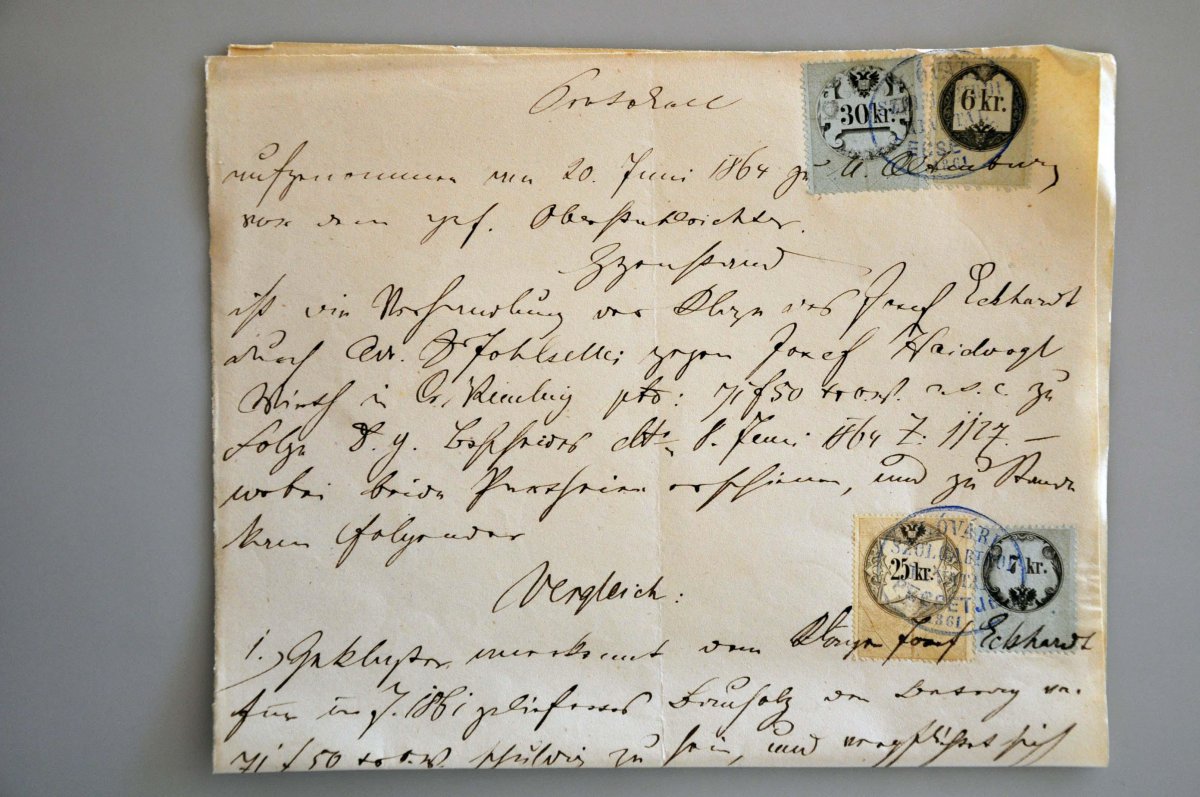 Protokoll
aufgenommen am 20. Juni 1864 zu U. Altenburg
vor dem gef. Oberstuhlrichter.
Gegenstand
ist die Verhandlung der Klage des Josef Eckhardt
durch Adv. Dr gegen Josef Haidvogl
Wirth in pto: 71 f 50 u. s. c. zu
Folge d. g. Bescheides dto 8. Juni 1864 Z. 1127. –
wobei beide Partheien erschienen, und zu Stande
kam folgender
Vergleich:
1.) Geklagter anerkennt dem Kläger Josef Eckhardt
für im J. 1861 geliefertes Bauholz den Betrag von
71 f 50 schuldig zu sein, und verpflichtet sich
30 kr.
6 kr.
25 kr.
7 kr.
ÓVÁRI
1861